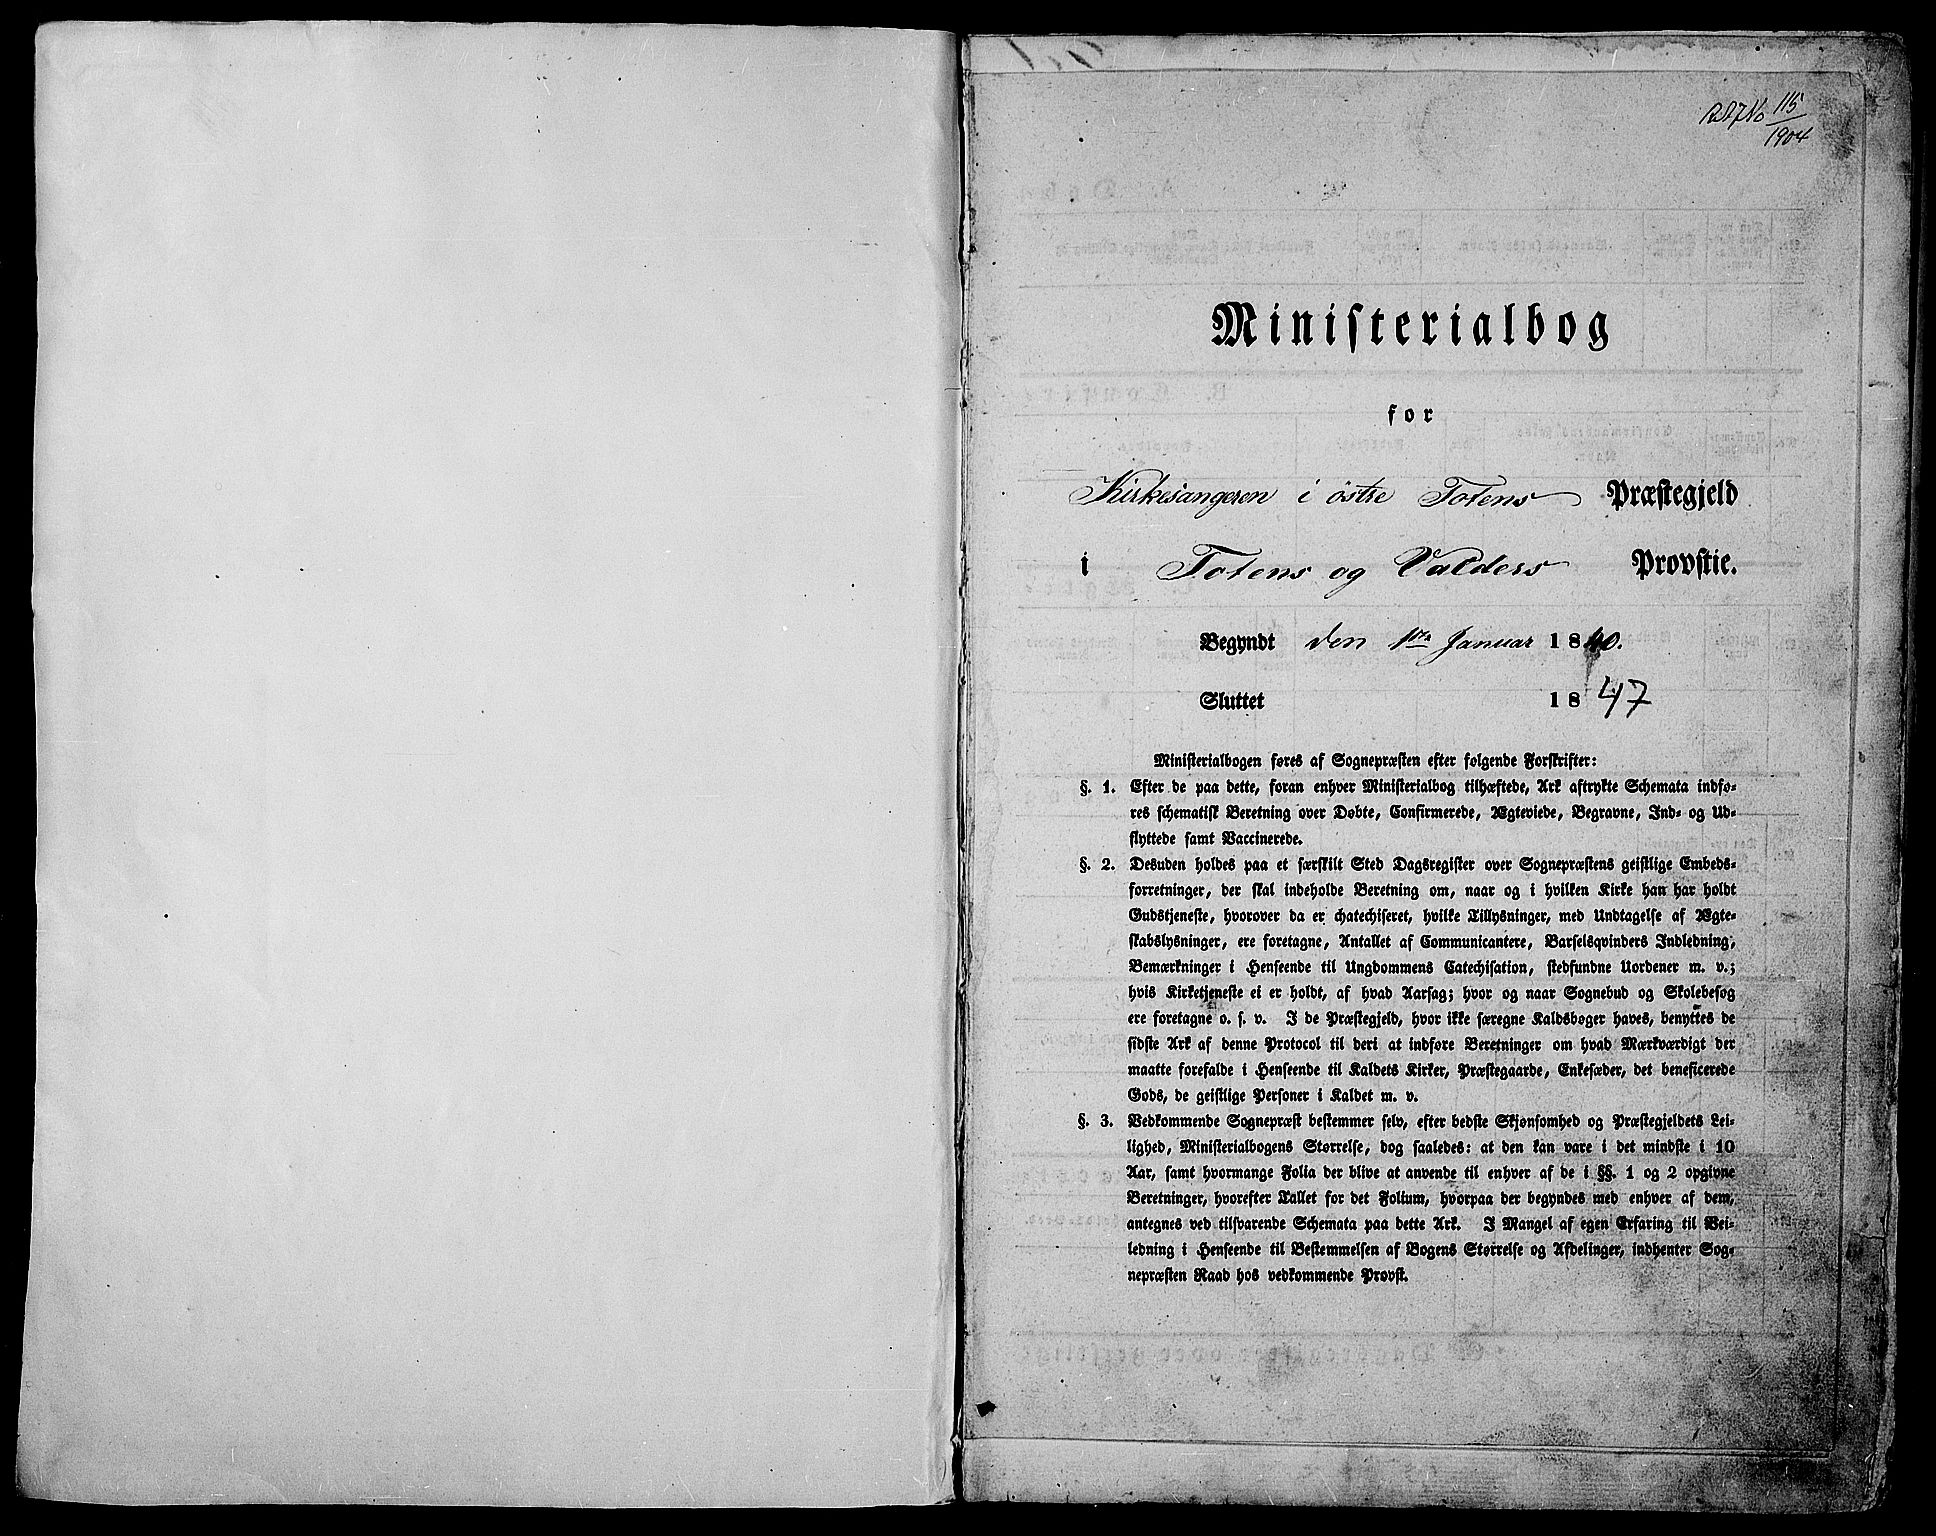 115
1904
Ministerialbog
for
Kirkesangeren i östre Totens Præstegjeld
i Totens og Valders Provstie.
Begyndt den 1ste Januar 1840.
Sluttet 1847
Ministerialbogen føres af Sognepræsten efter følgende Forskrifter:
§. 1. Efter de paa dette, foran enhver Ministerialbog tilhæftede, Ark aftrykte Schemata indfø-
res schematisk Beretning over Døbte, Confirmerede, Ægteviede, Begravne, Ind- og Ud-
flyttede samt Vaccinerede.
§. 2. Desuden holdes paa et særskilt Sted Dagsregister over Sognepræstens geistlige Embeds-
forretninger, der skal indeholde Beretning om, naar og i hvilken Kirke han har holdt
Gudstjeneste, hvorover da er chatechiseret, hvilke Tillysninger, med Undtagelse af Ægte-
skabslysninger, ere foretagne, Antallet af Communicantere, Barselqvinders Indledning,
Bemærkninger i Henseende til Ungdommens Catechisation, stedfundne Uordener m. v.;
hvis Kirketjeneste ei er holdt, af hvad Aarsag; hvor og naar Sognebud og Skolebesøg
ere foretagne o. s. v. I de Præstegjeld, hvor ikke særegne Kaldsbøger haves, benyttes de
sidste Ark af denne Protocol til deri at indføre Beretninger om hvad Mærkværdigt der
maatte forefalde i Henseende til Kaldets Kirker, Præstegaarde, Enkesæder, det beneficerede
Gods, de geistlige Personer i Kaldet m. v.
§. 3. Vedkommende Sognepræst bestemmer selv, efter bedste Skjønsomhed og Præstegjeldets Lei-
lighed, Ministerialbogens Størrelse, dog saaledes: at den kan vare i det mindste i 10
Aar, samt hvormange Folia der blive at anvende til enhver af de i §§. 1 og 2 opgivne
Beretninger, hvorefter Tallet for det Folium, hvorpaa der begyndes med enhver af dem,
antegnes ved tilsvarende Schemata paa dette Ark. I Mangel af egen Erfaring til Vei-
ledning i Henseende til Bestemmelsen af Bogens Størrelse og Afdelinger, indhenter Sog-
nepræsten Raad hos vedkommende Provst.